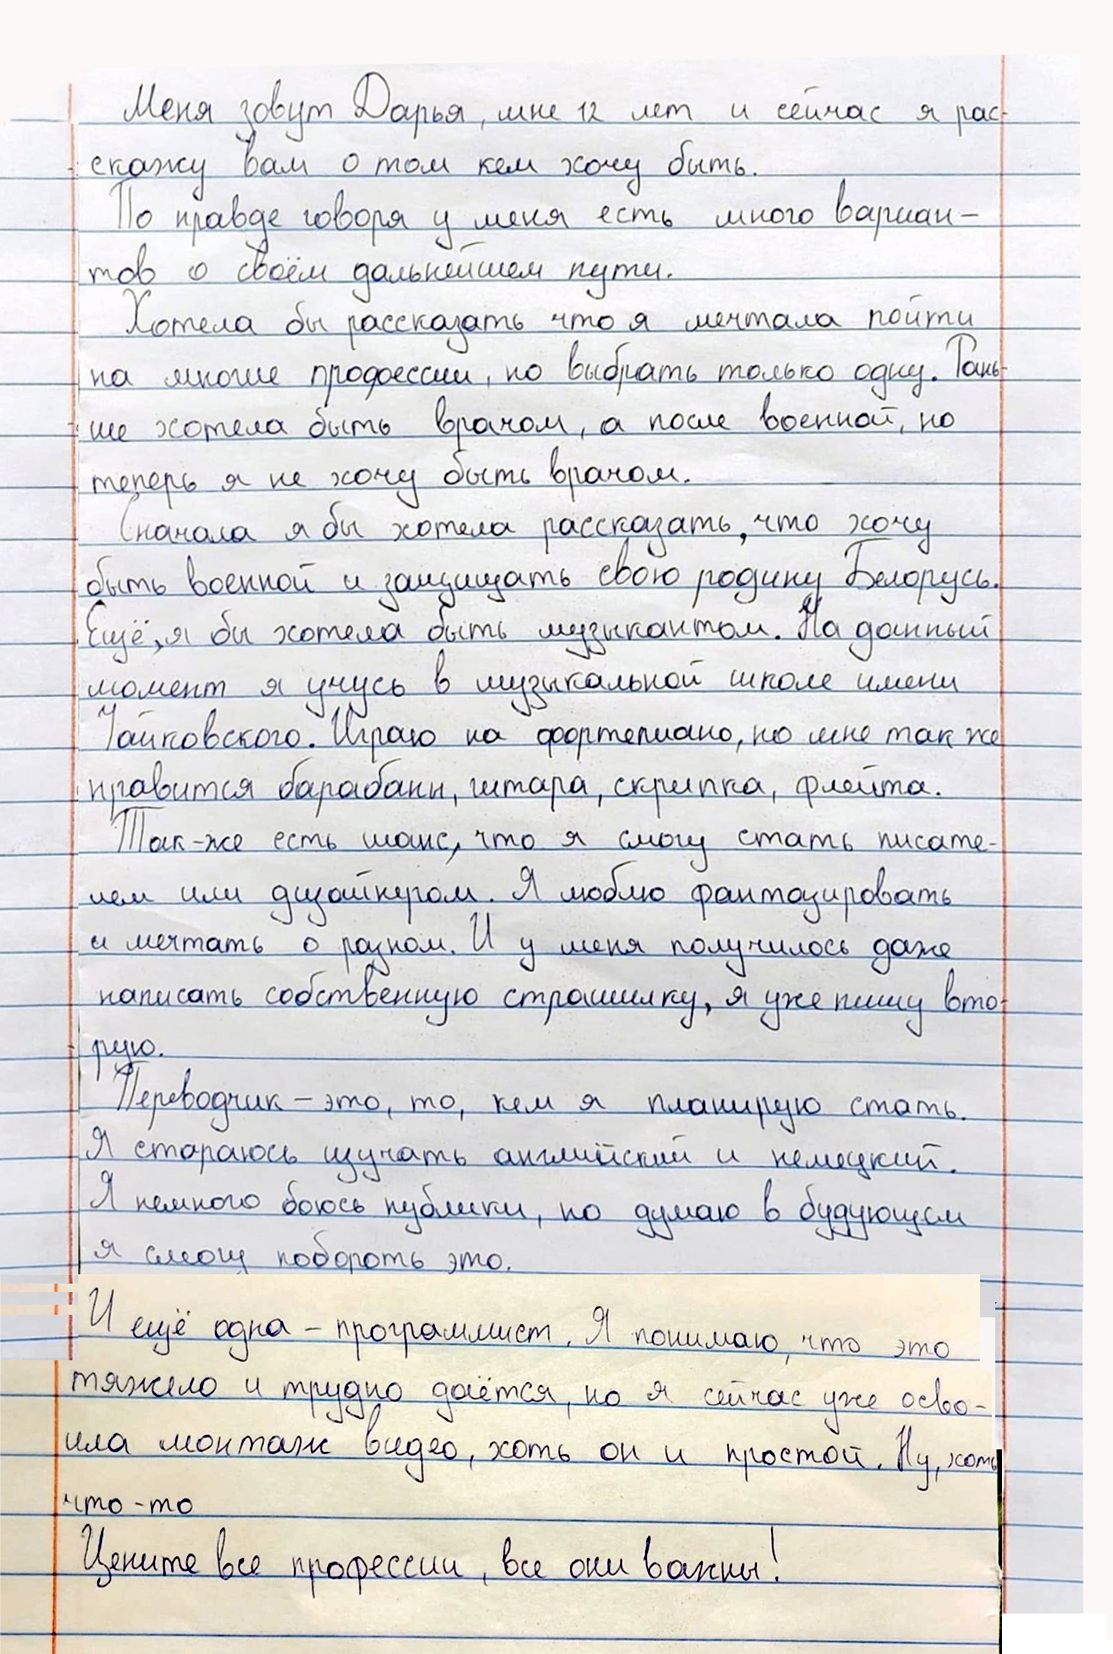 Меня зовут Дарья, мне 12 лет и сейчас я рас-
скажу вам о том кем хочу быть.
По правде говоря у меня есть много вариан-
тов о своём дальнейшем пути.
Хотела бы рассказать что я мечтала пойти
на многие профессии, но выбрать только одну. Рань-
ше хотела быть врачом, а после военной, но
теперь я не хочу быть врачом.
Сначала я бы хотела рассказать, что хочу
быть военной и защищать свою родину Белорусь.
Ещё, я бы хотела быть музыкантом. На данный
момент я учусь в музыкальной школе имени
Чайковского. Играю на фортепиано, но мне так же
нравится барабаны, гитара, скрипка, флейта.
Так-же есть шанс, что я смогу стать писате-
лем или дизайнером. Я люблю фантазировать
и мечтать о разном. И у меня получилось даже
написать собственную страшилку, я уже пишу вто-
рую.
Переводчик – это, то, кем я планирую стать.
Я стараюсь изучать английский и немецкий.
Я немного боюсь публики, но думаю в будующем
я смогу побороть это.
И ещё одна – программист. Я понимаю, что это
тяжело и трудно даётся, но я сейчас уже осво-
ила монтаж видео, хоть он и простой. Ну, хоть
что-то
Цените все профессии, все они важны!